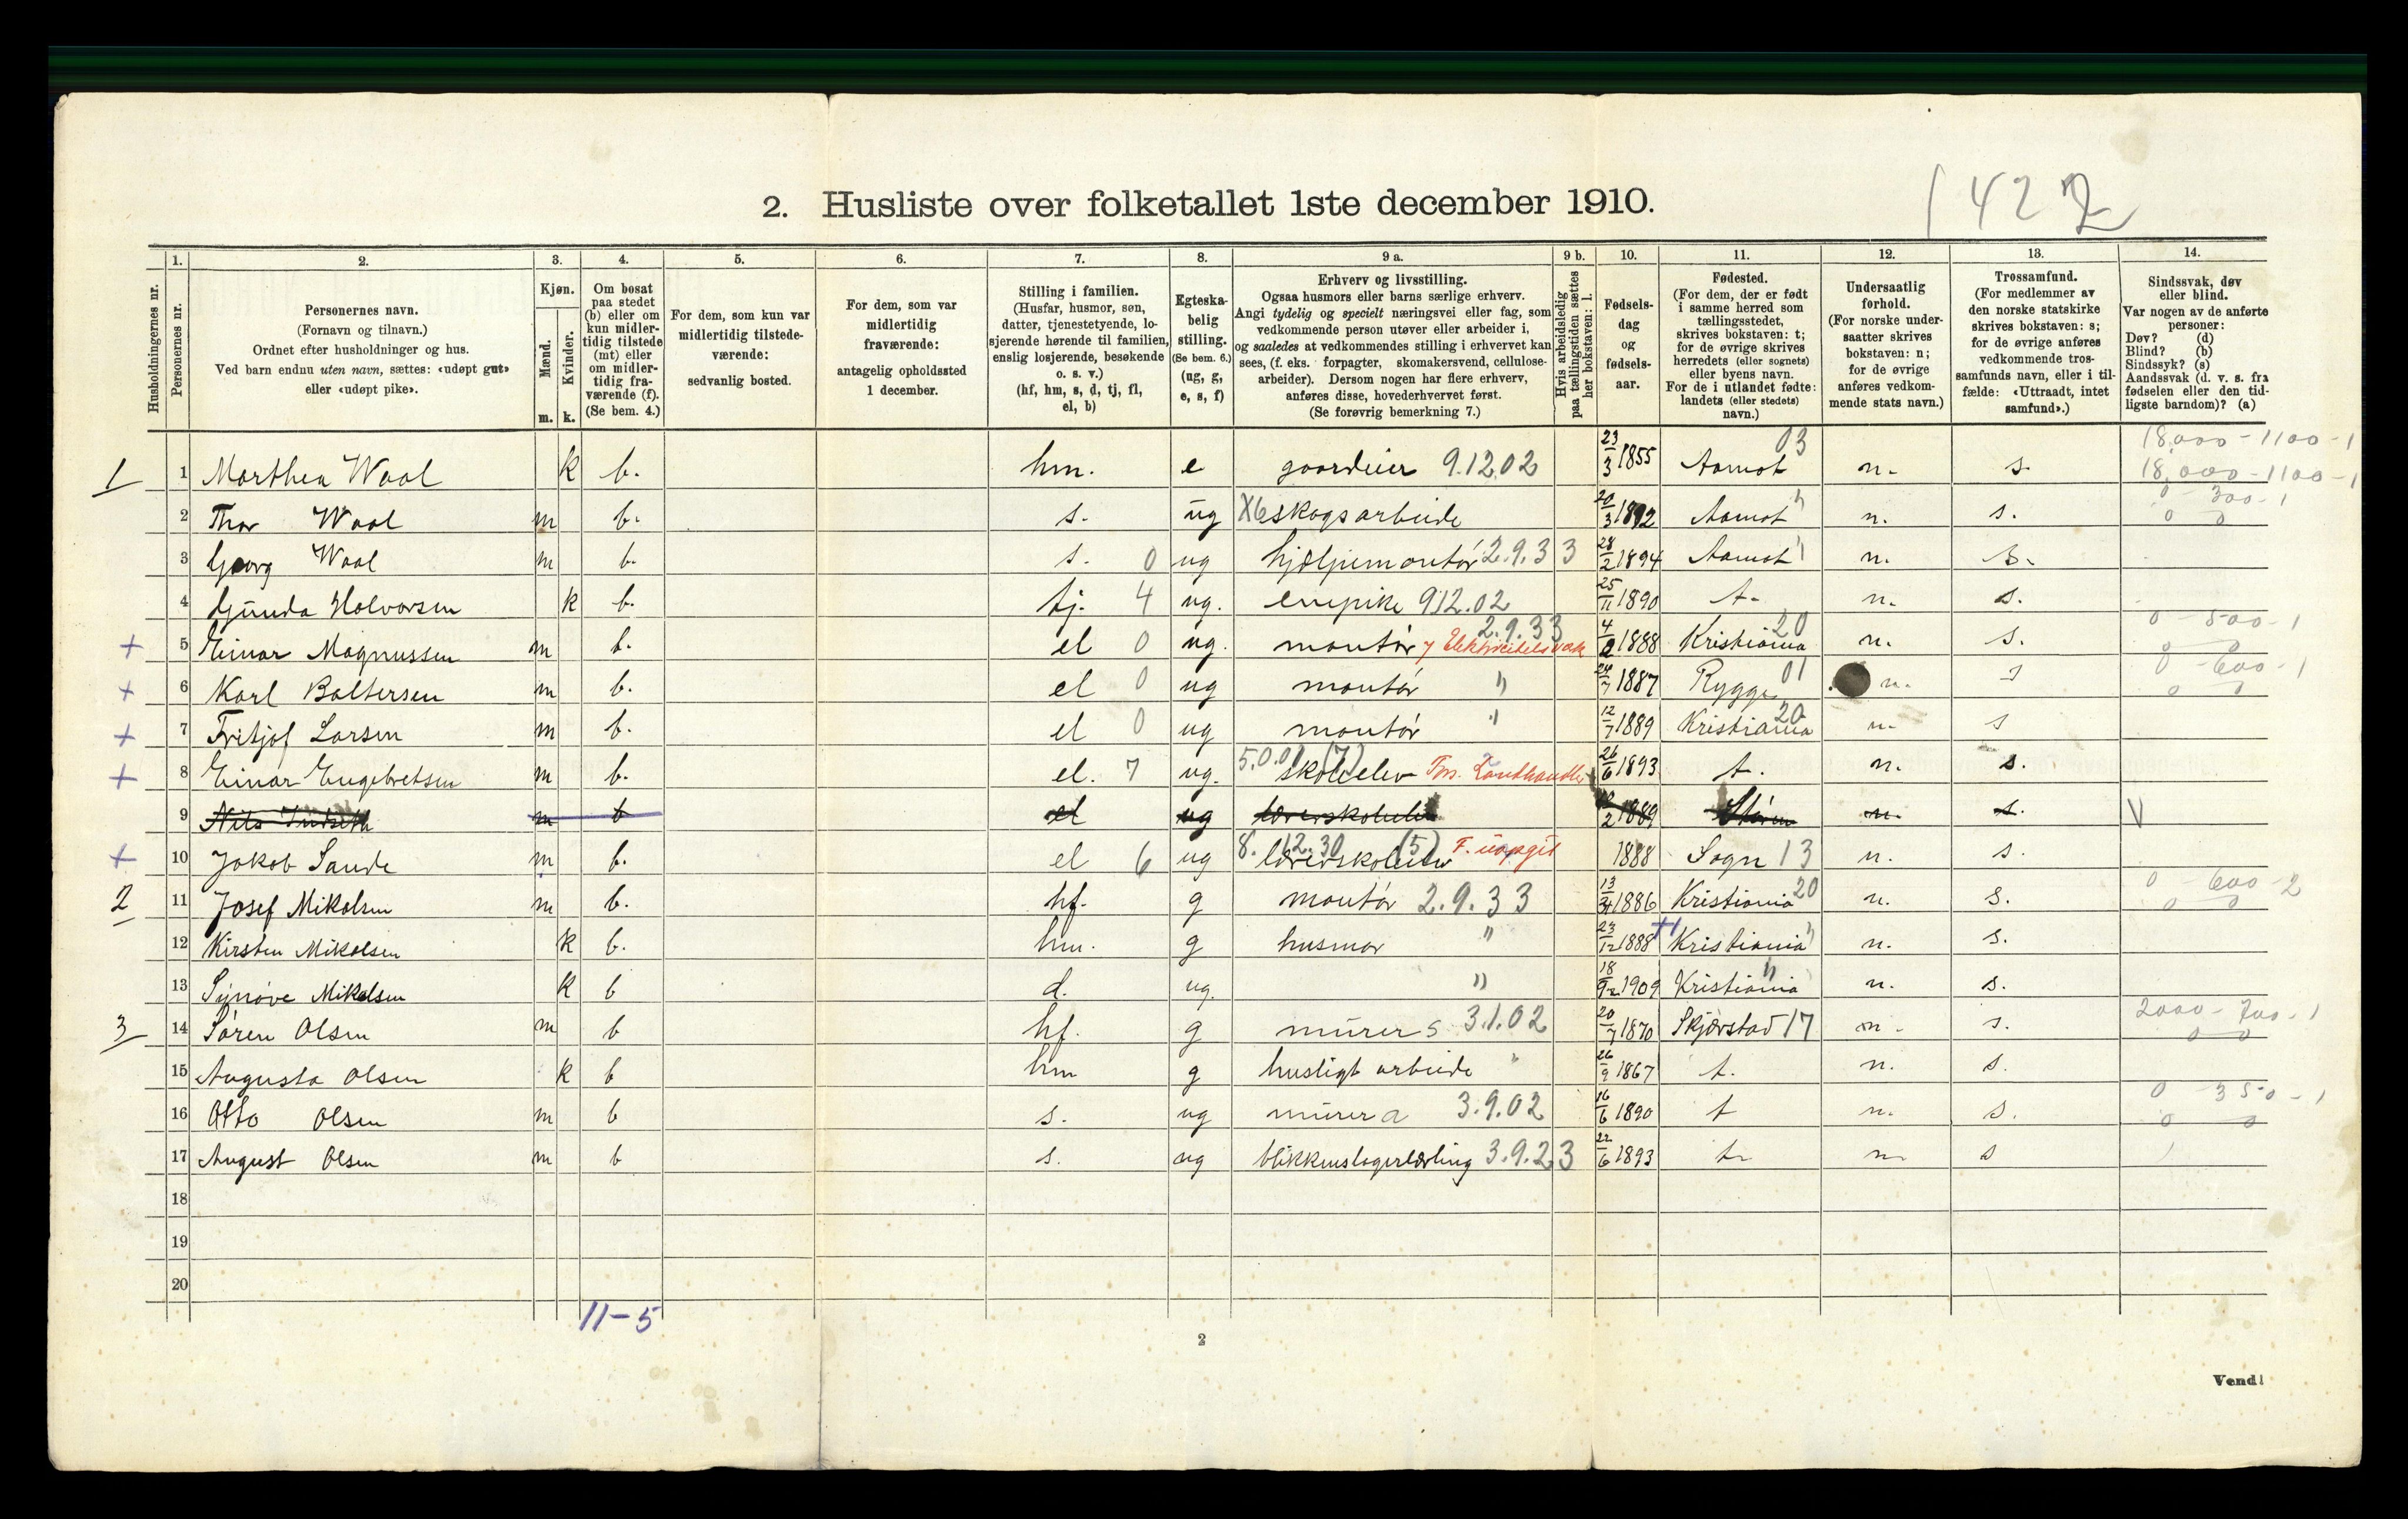 1422
2. Husliste over folketallet 1ste december 1910.
1. 2. 3. 4. 5. 6. 7. 8. 9 a. 9 b. 10. 11. 12. 13. 14.
Husholdningernes nr.
Personernes nr.
Personernes navn.
(Fornavn og tilnavn.)
Ordnet efter husholdninger og hus.
Ved barn endnu uten navn, sættes: «udøpt gut»
eller «udøpt pike».
Kjøn.
Mænd.
Kvinder.
m. k.
Om bosat
paa stedet
(b) eller om
kun midler-
tidig tilstede
(mt) eller
om midler-
tidig fra-
værende (f).
(Se bem. 4.)
For dem, som kun var
midlertidig tilstede-
værende:
sedvanlig bosted.
For dem, som var
midlertidig
fraværende:
antagelig opholdssted
1 december.
Stilling i familien.
(Husfar, husmor, søn,
datter, tjenestetyende, lo-
sjerende hørende til familien,
enslig losjerende, besøkende
o. s. v.)
(hf, hm, s, d, tj, fl,
el, b)
Egteska-
belig
stilling.
(Se bem. 6.)
(ug, g,
e, s, f)
Erhverv og livsstilling.
Ogsaa husmors eller barns særlige erhverv.
Angi tydelig og specielt næringsvei eller fag, som
vedkommende person utøver eller arbeider i,
og saaledes at vedkommendes stilling i erhvervet kan
sees, (f. eks. forpagter, skomakersvend, cellulose-
arbeider). Dersom nogen har flere erhverv,
anføres disse, hovederhvervet først.
(Se forøvrig bemerkning 7.)
Hvis arbeidsledig
paa tællingstiden sættes
her bokstaven: l.
Fødsels-
dag
og
fødsels-
aar.
Fødested.
(For dem, der er født
i samme herred som
tællingsstedet,
skrives bokstaven: t;
for de øvrige skrives
herredets (eller sognets)
eller byens navn.
For de i utlandet fødte:
landets (eller stedets)
navn.)
Undersaatlig
forhold.
(For norske under-
saatter skrives
bokstaven: n;
for de øvrige
anføres vedkom-
mende stats navn.)
Trossamfund.
(For medlemmer av
den norske statskirke
skrives bokstaven: s;
for de øvrige anføres
vedkommende tros-
samfunds navn, eller i til-
fælde: «Uttraadt, intet
samfund».)
Sindssvak, døv
eller blind.
Var nogen av de anførte
personer:
Døv? (d)
Blind? (b)
Sindssyk? (s)
Aandssvak (d. v. s. fra
fødselen eller den tid-
ligste barndom)? (a)
1 1 Marthea Waal k b. hm. e gaardeier 9.12.02 23/3 1855 Aamot 03 n. s. 18,000-1100-1 18,000-1100-1
2 Thor Waal m b. s. ug X6 skogsarbeide 20/3 1892 Aamot " n. s. 0 300-1 0 0
3 Georg Waal m b. s. 0 ug hjelpemontør 2.9.33 28/2 1894 Aamot " n. s.
4 Gunda Halvorsen k b. tj. 4 ug. enepike 912.02 25/11 1890 t. n. s.
+ 5 Einar Magnussen m b. el 0 ug. montør 2.9.33 4/2 1888 Kristiania 20 n. s. 0-500-1 0 0
+ 6 Karl Baltersen m b. el 0 ug montør " 24/7 1887 Rygge 01 n. s 0-600-1 0 0
+ 7 Fritjof Larsen m b. el 0 ug montør " 12/7 1889 Kristiania 20 n. s
+ 8 Einar Engebretsen m b. el. 7 ug. 5.0.01 (7) skoleelev Fm. Landhandler 26/6 1893 t. n. s.
9 Nils m b el ug lærerskoleelev 2 1889 Støren n. s. V
+ 10 Jakob Sande m b. el 6 ug 8.12.30 (5) lærerskoleelev F. uopgit 1888 Sogn 13 n. s.
2 11 Josef Mikalsen m b. hf. g montør 2.9.33 13/ 1886 Kristiania 20 n. s. 0-600-2 0 0
12 Kirsten Mikalsen k b. hm. g husmor " 23/12 1888 Kristiania " n. s.
13 Synøve Mikalsen k b d. ug. " 18/9 1909 Kristiania " n. s.
3 14 Søren Olsen m b hf. g murer s 3.1.02 20/7 1870 Skjørstad 17 n. s. 2000-700-1 0 0
15 Augusta Olsen k b hm g husligt arbeide " 26/9 1867 t. n. s.
16 Otto Olsen m b s. ug murer a 3.9.02 16/6 1890 t n. s. 0 350-1 0 0
17 August Olsen m b s. ug blikkenslagerlærling 3.9.23 22/6 1893 t. n. s
18
19
20
11-5
2
Vend!